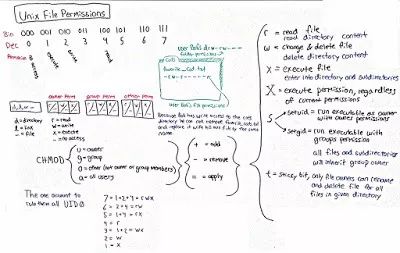 Unix File Permissions
Bin 000 001 010 011 100 101 110 111
Dec 0 1 2 3 4 5 6 7
no access
execute
write
read
owner perm group perm other perm
d = directory
l = link
- = file
r = read
w = write
x = execute
- = no access
User Bob's drw-rw----
Cats
favorite_cat.txt
User Bob's file permissions
CHMOD
u = owner
g = group
o = other (not owner or group members)
a = all users
+ = add
- = remove
= = apply
The one account to
rule them all UID 0
7 = 1+2+4 = rwx
6 = 2+4 = rw
5 = 1+4 = rx
4 = r
3 = 1+2 = wx
2 = w
1 = x
r = read file
read directory content
w = change & delete file
delete directory content
x = execute file
enter into directory and subdirectories
X = execute permission, regardless
of current permissions
s
setuid = run executable as owner
with owner permissions
setgid = run executable with
groups permission
all files and subdirectories
will inherit group owner
t = sticky bit, only file owners can rename
and delete file for all
files in given directory